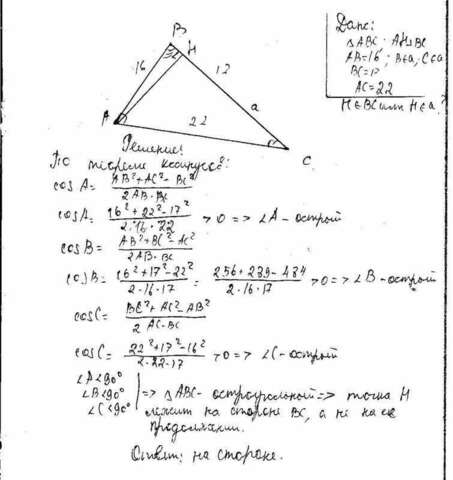 Дано:
△ABC; AH⊥BC
AB=16; B∈a, C∈a
BC=17
AC=22
H∈BC или H∈a?
B
H
16
12
a
A
22
C
Решение:
По теореме косинусов:
cos A = (AB²+AC²-BC²)/(2AB·BC)
cos A = (16²+22²-17²)/(2·16·22) >0 => ∠A - острый
cos B = (AB²+BC²-AC²)/(2AB·BC)
cos B = (16²+17²-22²)/(2·16·17) = (256+289-484)/(2·16·17) >0 => ∠B - острый
cos C = (BC²+AC²-AB²)/(2AC·BC)
cos C = (22²+17²-16²)/(2·22·17) >0 => ∠C - острый
∠A<90°
∠B<90° => △ABC - остроугольной => точка H
∠C<90° лежит на стороне BC, а не на её
продолжении.
Ответ: на стороне.